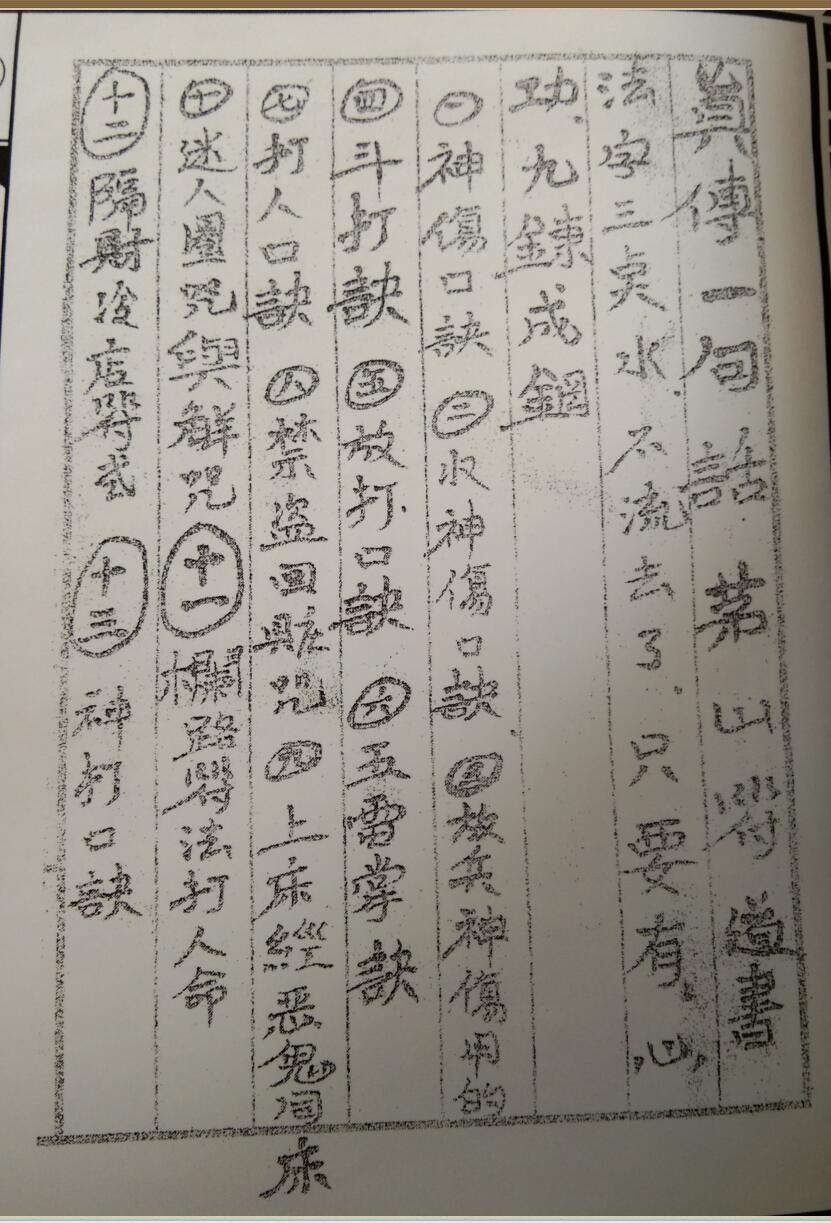 眞傳一句話 茅山符 道書
法字三点水.不流去了.只要有心
功.九錬成鋼
㊀神傷口訣㊁收神傷口訣㊂放兵神傷用的
㊃斗打訣㊄放打口訣㊅五雷掌訣
㊆打人口訣㊇禁盜回賍咒㊈上床經惡鬼同床
㊉迷人圍咒與解咒 十一 欄路符法打人命
十二 隔財 店符 十三 神打口訣